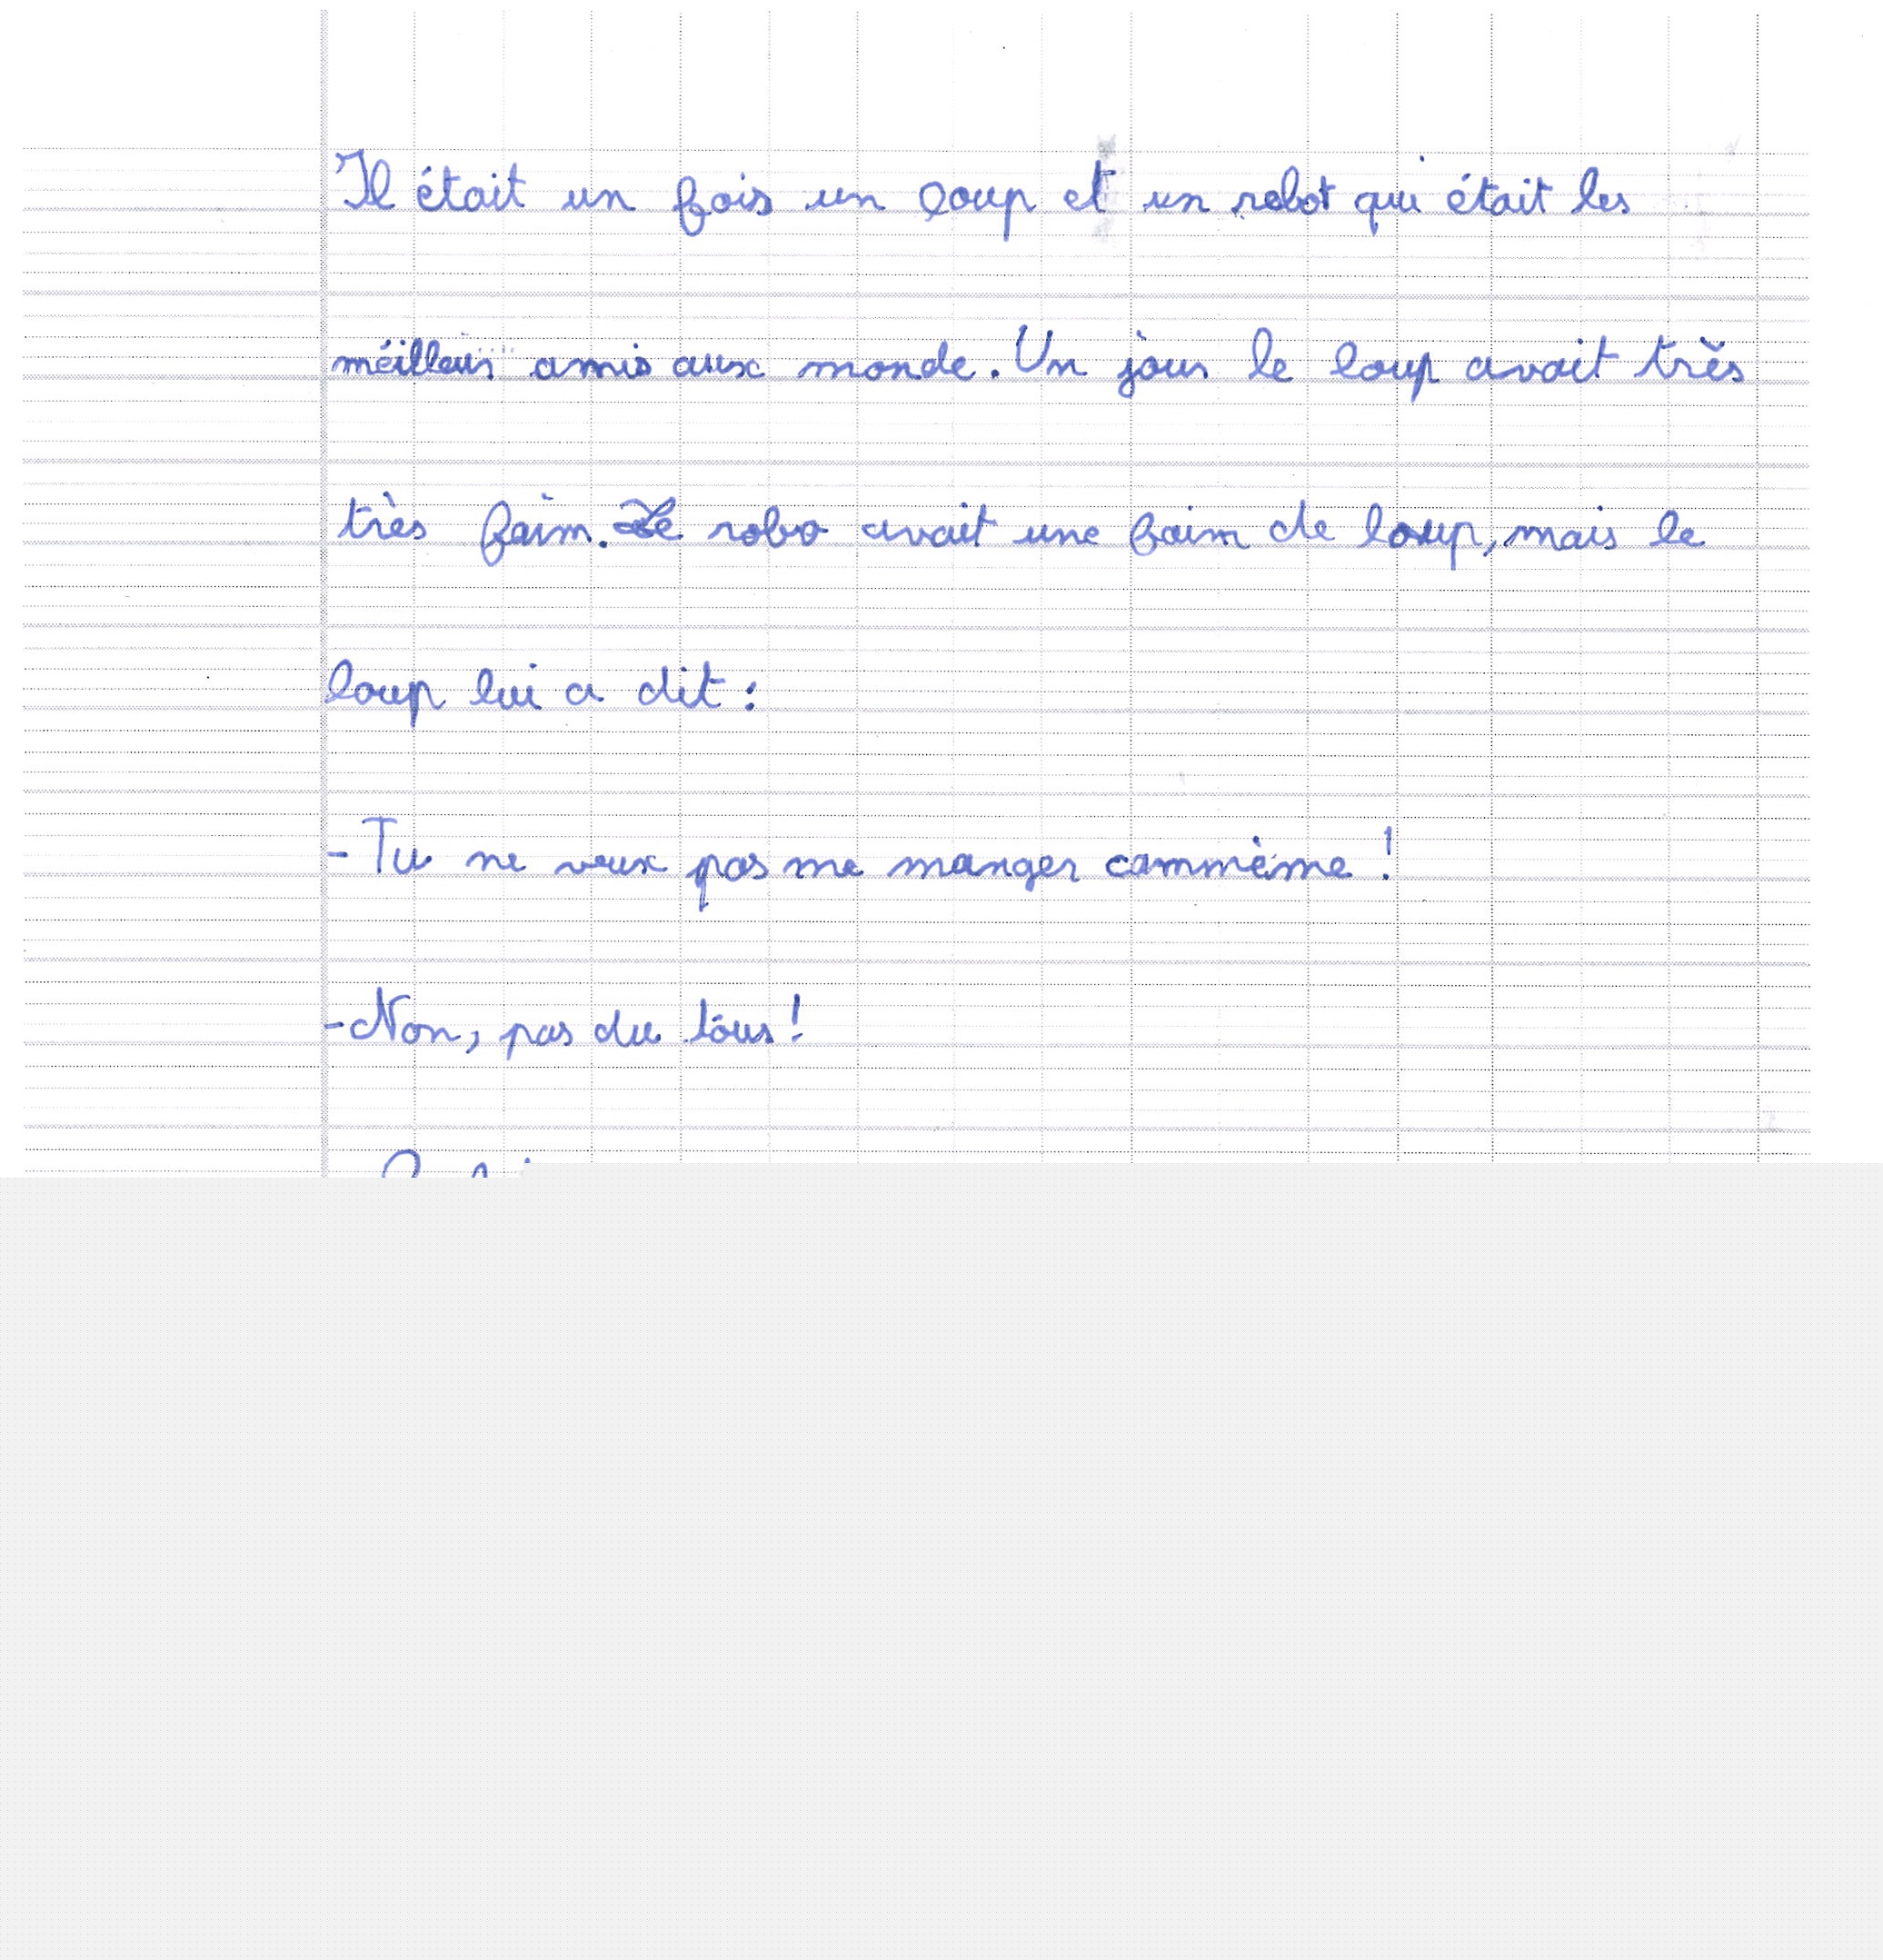 Il était un fois un loup et un robot qui était les
méilleur amis aux monde. Un jour le loup avait très
très faim. Le robo avait une faim de loup, mais le
loup lui a dit :
- Tu ne veux pas me manger cammème !
- Non, pas du tous !